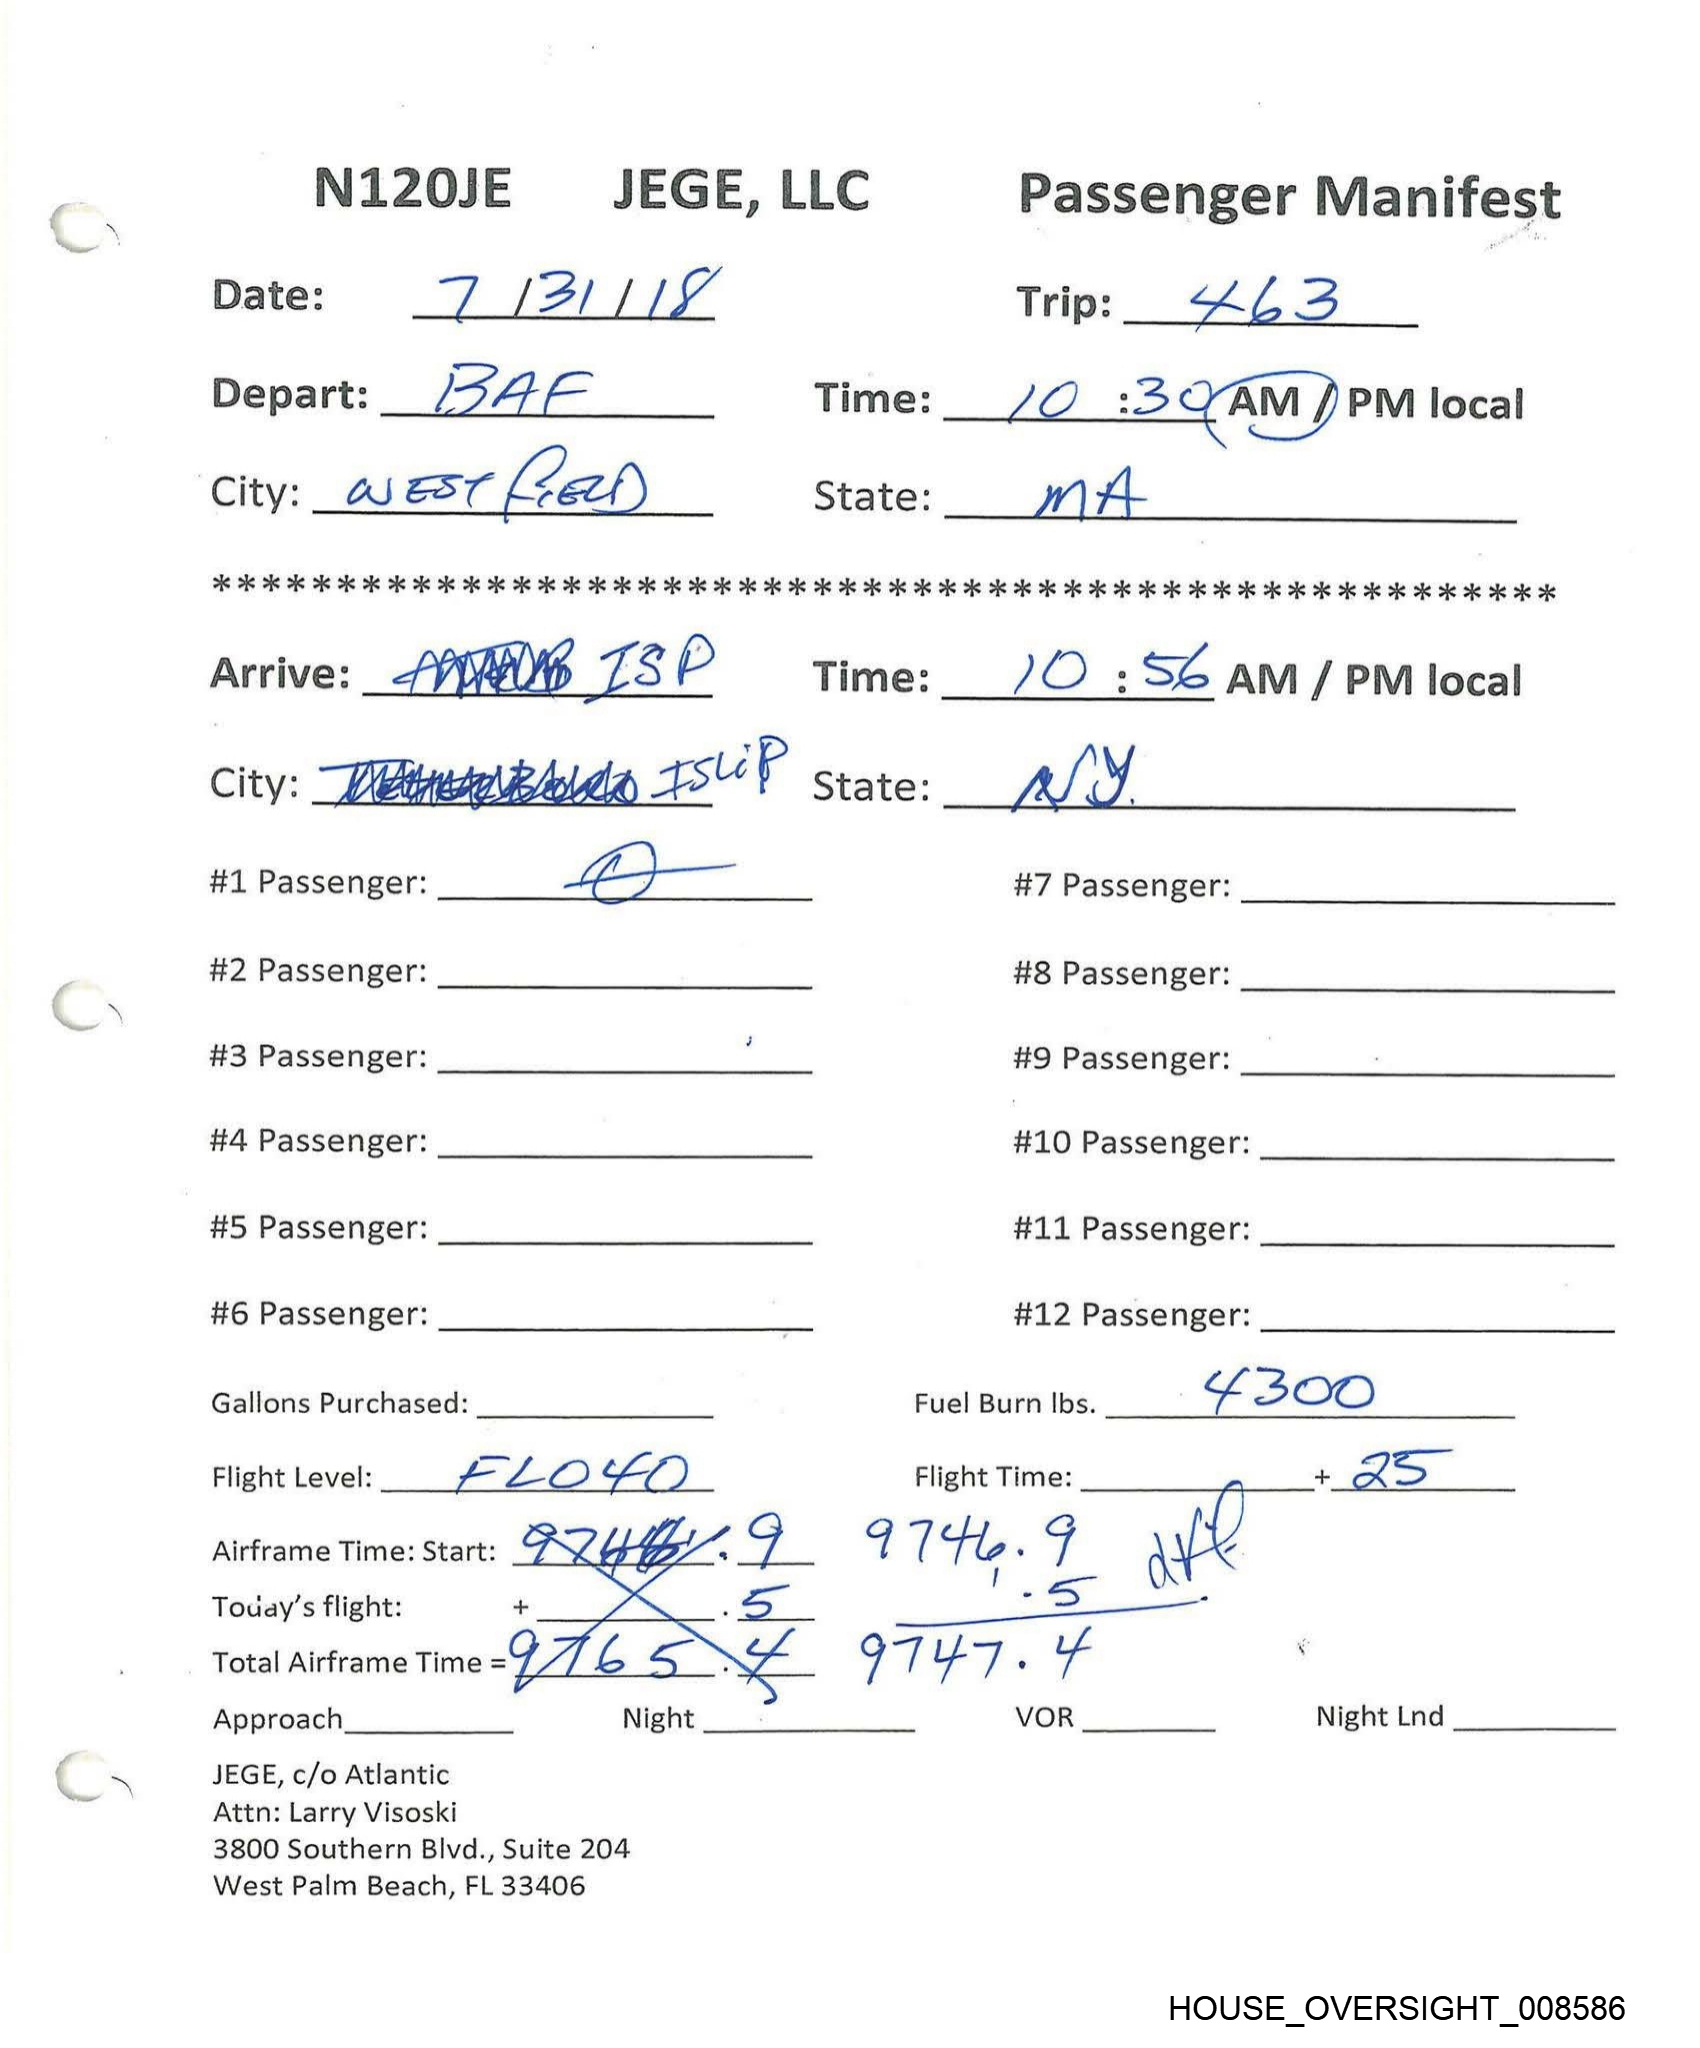 N120JE JEGE, LLC Passenger Manifest
Date: 7/31/18 Trip: 463
Depart: BAF Time: 10:30 AM / PM local
City: WESTFIELD State: MA
******************************************************
Arrive: ISP Time: 10:56 AM / PM local
City: ISLIP State: NY.
#1 Passenger: #7 Passenger:
#2 Passenger: #8 Passenger:
#3 Passenger: #9 Passenger:
#4 Passenger: #10 Passenger:
#5 Passenger: #11 Passenger:
#6 Passenger: #12 Passenger:
Gallons Purchased: Fuel Burn lbs. 4300
Flight Level: FL040 Flight Time: + 25
Airframe Time: Start: .9 9746.9
Today's flight: + .5 .5
Total Airframe Time = 9765.4 9747.4
Approach Night VOR Night Lnd
JEGE, c/o Atlantic
Attn: Larry Visoski
3800 Southern Blvd., Suite 204
West Palm Beach, FL 33406
HOUSE_OVERSIGHT_008586